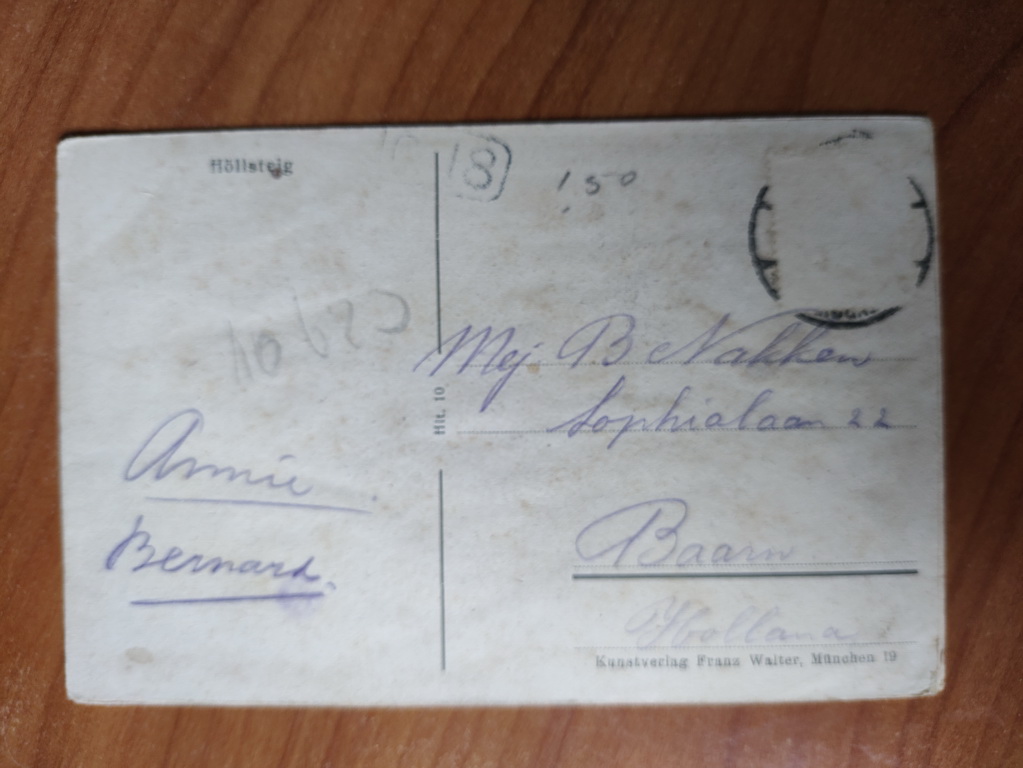 Höllsteig
18
1.50
10683
Mej. B Nakken
Hit. 10
Sophialaan 22
Annie
Bernard.
Baarn
Holland
Kunstverlag Franz Walter, München 19